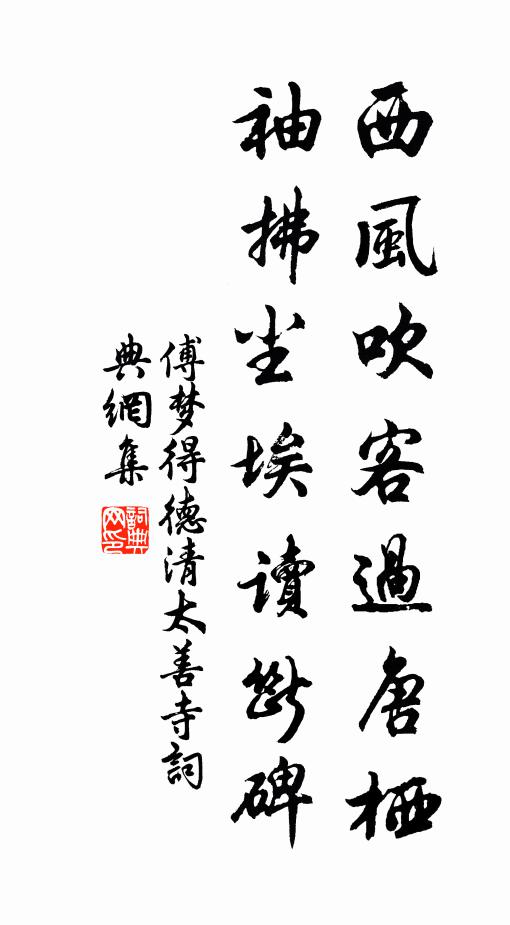 西風吹客過唐栖
袖拂尘埃讀斷碑
傅梦得德清太善寺詞
典網集
詞典网印